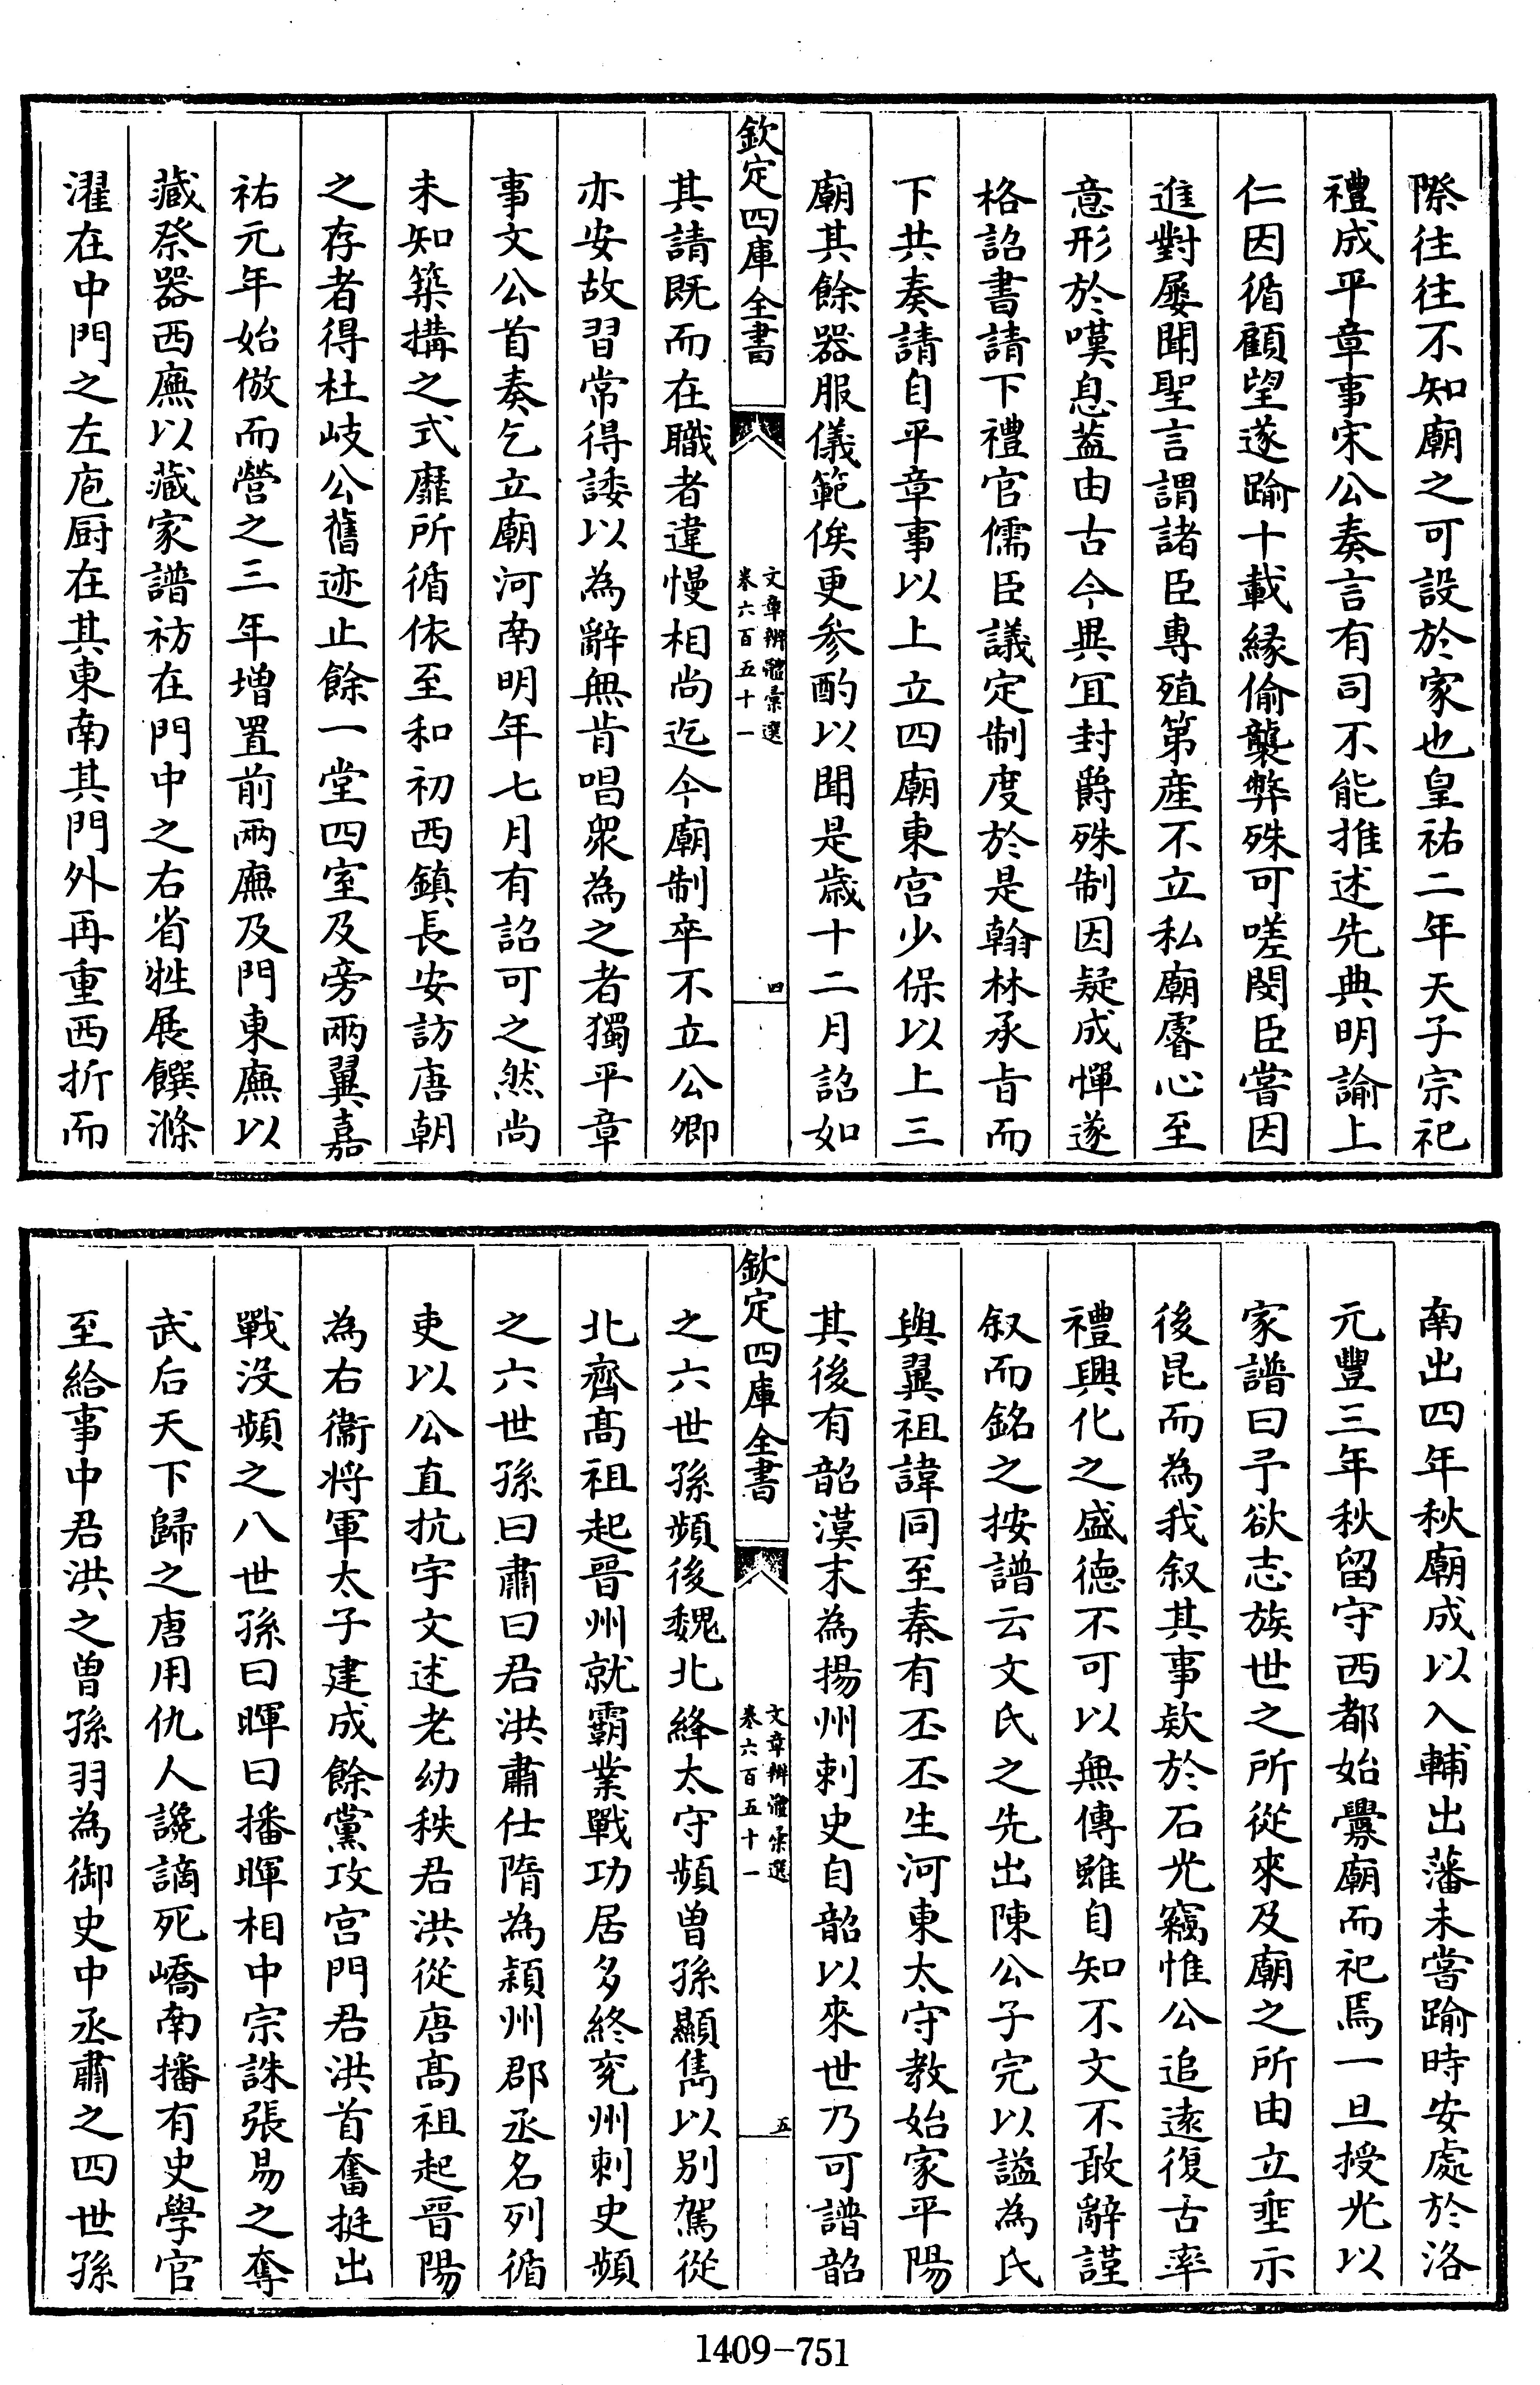 際往往不知廟之可設於家也皇祐二年天子宗祀
禮成平章事宋公奏言有司不能推述先典明諭上
仁因循顧望遂踰十載緣偷襲弊殊可嗟閔臣嘗因
進對屢聞聖言謂諸臣專殖第産不立私廟睿心至
意形於嘆息葢由古今異宜封爵殊制因疑成憚遂
格詔書請下禮官儒臣議定制度於是翰林承旨而
下共奏請自平章事以上立四廟東宫少保以上三
廟其餘器服儀範俟更參酌以聞是歲十二月詔如
欽定四庫全書
文章辨體彙選
卷六百五十一
四
其請既而在職者違慢相尚迄今廟制卒不立公卿
亦安故習常得諉以為辭無肯唱衆為之者獨平章
事文公首奏乞立廟河南明年七月有詔可之然尚
未知築搆之式靡所循依至和初西鎮長安訪唐朝
之存者得杜岐公舊迹止餘一堂四室及旁兩翼嘉
祐元年始倣而營之三年增置前兩廡及門東廡以
藏祭器西廡以藏家譜祊在門中之右省牲展饌滌
濯在中門之左庖厨在其東南其門外再重西折而
南出四年秋廟成以入輔出藩未嘗踰時安處於洛
元豐三年秋留守西都始釁廟而祀焉一旦授光以
家譜曰予欲志族世之所從來及廟之所由立垂示
後昆而為我叙其事欵於石光竊惟公追逺復古率
禮興化之盛徳不可以無傳雖自知不文不敢辭謹
叙而銘之按譜云文氏之先出陳公子完以諡為氏
與翼祖諱同至秦有丕丕生河東太守教始家平陽
其後有韶漢末為揚州刺史自韶以來世乃可譜韶
欽定四庫全書
文章辨體彙選
卷六百五十一
五
之六世孫頻後魏北絳太守頻曾孫顯雋以别駕從
北齊髙祖起晉州就霸業戰功居多終兖州刺史頻
之六世孫曰肅曰君洪肅仕隋為潁州郡丞名列循
吏以公直抗宇文述老幼秩君洪從唐髙祖起晉陽
為右衞將軍太子建成餘黨攻宫門君洪首奮挺出
戰没頻之八世孫曰暉曰播暉相中宗誅張易之奪
武后天下歸之唐用仇人讒謫死嶠南播有史學官
至給事中君洪之曾孫羽為御史中丞肅之四世孫
1409-751